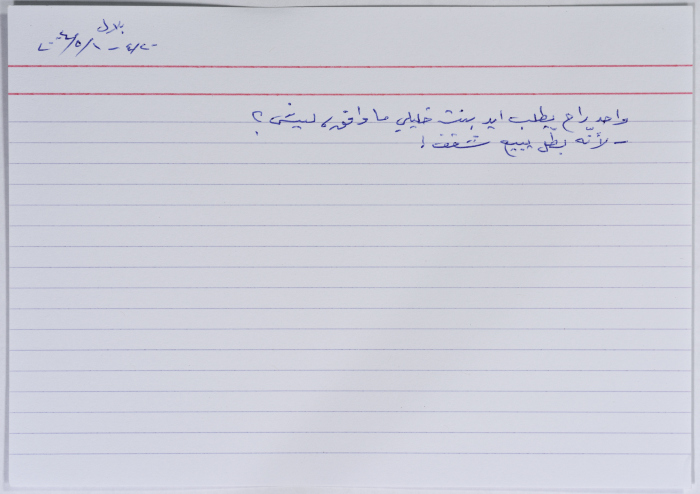 بلال
واحد راح يطلب ايد بنت خليلي ما وافق، ليش؟
- لأنّه بطّل يبيع شقف!